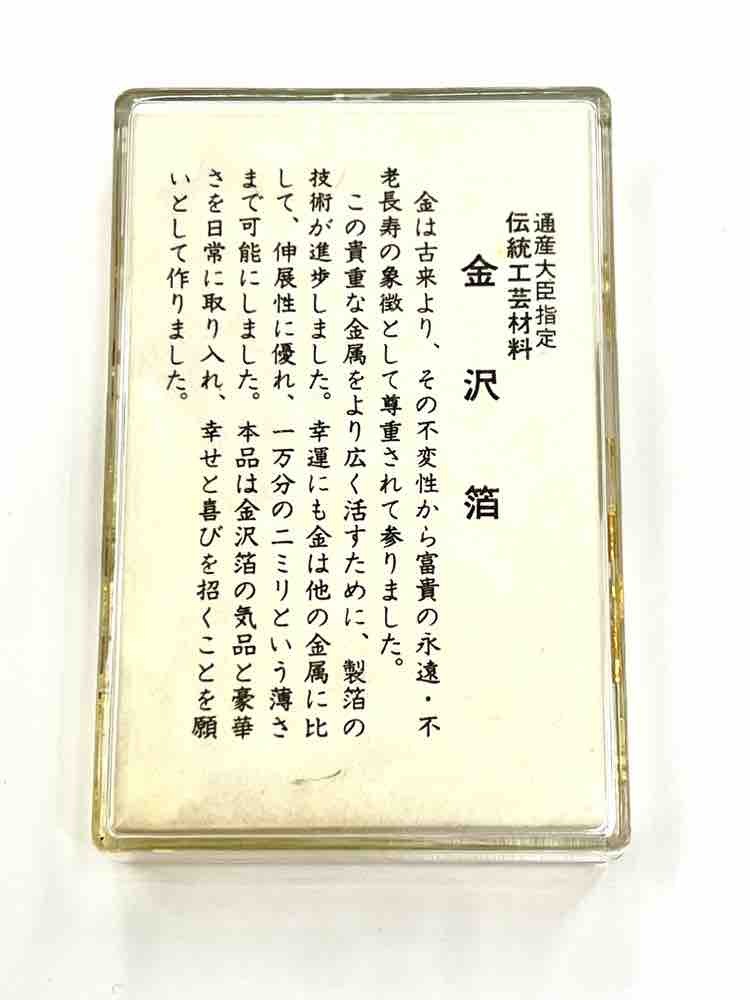 通産大臣指定
伝統工芸材料
金沢箔
金は古来より、その不変性から富貴の永遠・不
老長寿の象徴として尊重されて参りました。
この貴重な金属をより広く活すために、製箔の
技術が進歩しました。幸運にも金は他の金属に比
して、伸展性に優れ、一万分の二ミリという薄さ
まで可能にしました。本品は金沢箔の気品と豪華
さを日常に取り入れ、幸せと喜びを招くことを願
いとして作りました。